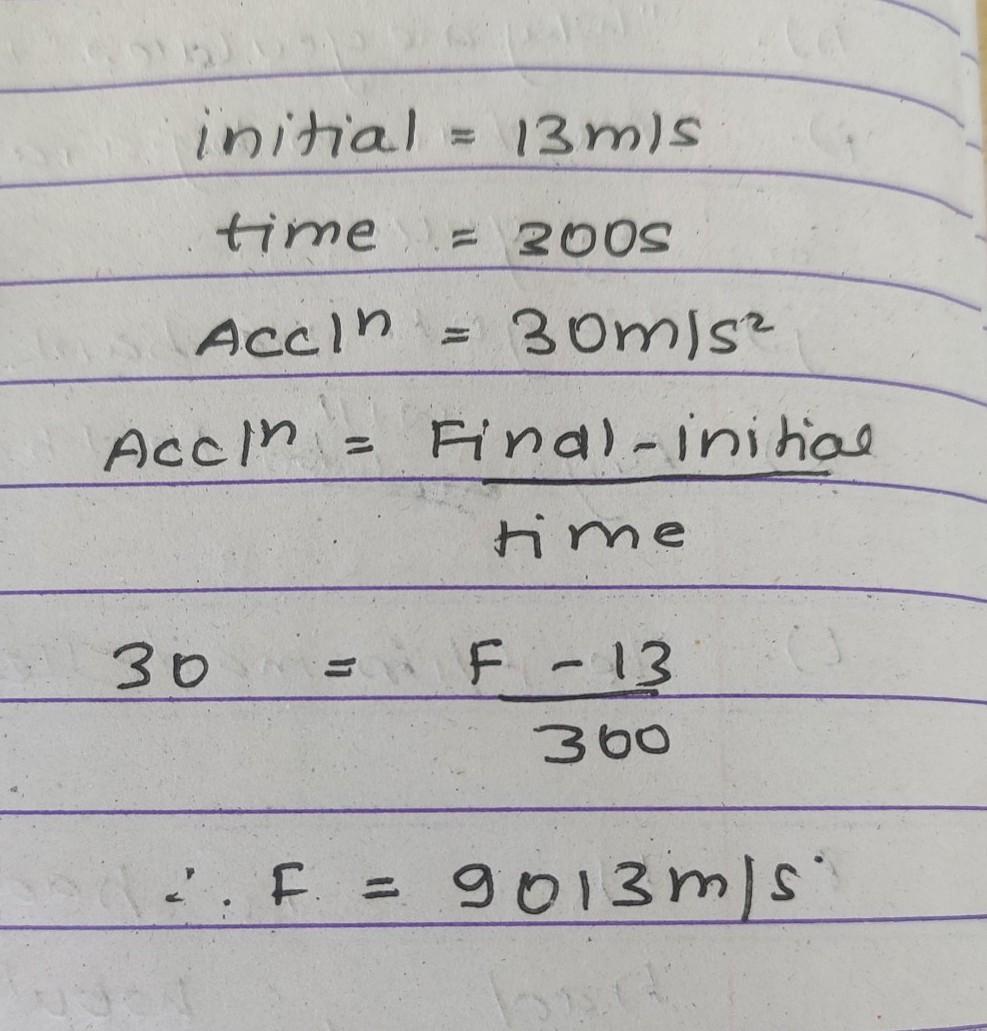 initial = 13m/s
time = 300s
Accln = 30m/s²
Accln = Final - initial
time
30 = F - 13
300
∴ F = 9013m/s